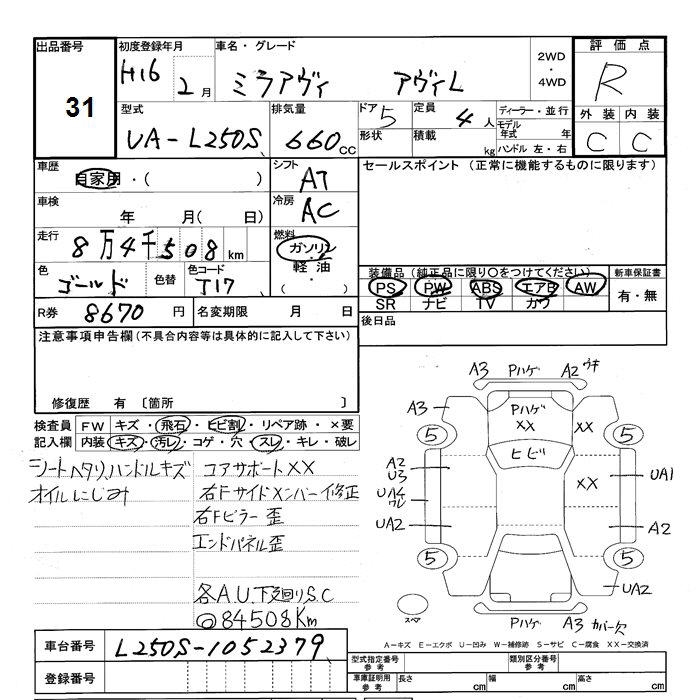 出品番号 初度登録年月 車名・グレード 評価点
31 H16 2月 ミラアヴィ アヴィL 2WD・4WD R
型式 排気量 ドア 5 定員 4人 ディーラー・並行 外装 内装
UA-L250S 660cc 形状 積載 kg モデル年式 年 C C
ハンドル 左・右
車歴 自家用・( ) シフト AT セールスポイント (正常に機能するものに限ります)
車検 年 月( 日) 冷房 AC
走行 8万4千508km 燃料 ガソリン
軽油
( ・ )
色 ゴールド 色替 色コード T17 装備品 (純正品に限り○をつけてください) 新車保証書
PS PW ABS エアB AW 有・無
SR ナビ TV カワ
R券 8670円 名変期限 月 日 後日品
注意事項申告欄(不具合内容等は具体的に記入して下さい)
修復歴 有 〔箇所 〕
検査員 FW キズ・飛石・ヒビ割・リペア跡・×要
記入欄 内装 キズ・汚レ・コゲ・穴・スレ・キレ・破レ
シートヘタリ、ハンドルキズ
オイルにじみ
コアサポートXX
右Fサイドメンバー修正
右Fピラー歪
エンドパネル歪
各A.U.下廻りS.C
◎84508Km
A3 Pハゲ A2 ウキ
A3 Pハゲ
XX XX
5 5
ヒビ
A2
U3 UA1
UA4 XX
ワレ
UA2 A2
5 5
UA2
スペア Pハゲ A3 カバー欠
車台番号 L250S-1052379
登録番号
A-キズ E-エクボ U-凹み W-補修跡 S-サビ C-腐食 XX-交換済
型式指定番号 参考 類別区分番号 参考
車庫証明用 参考 長さ cm 幅 cm 高さ cm